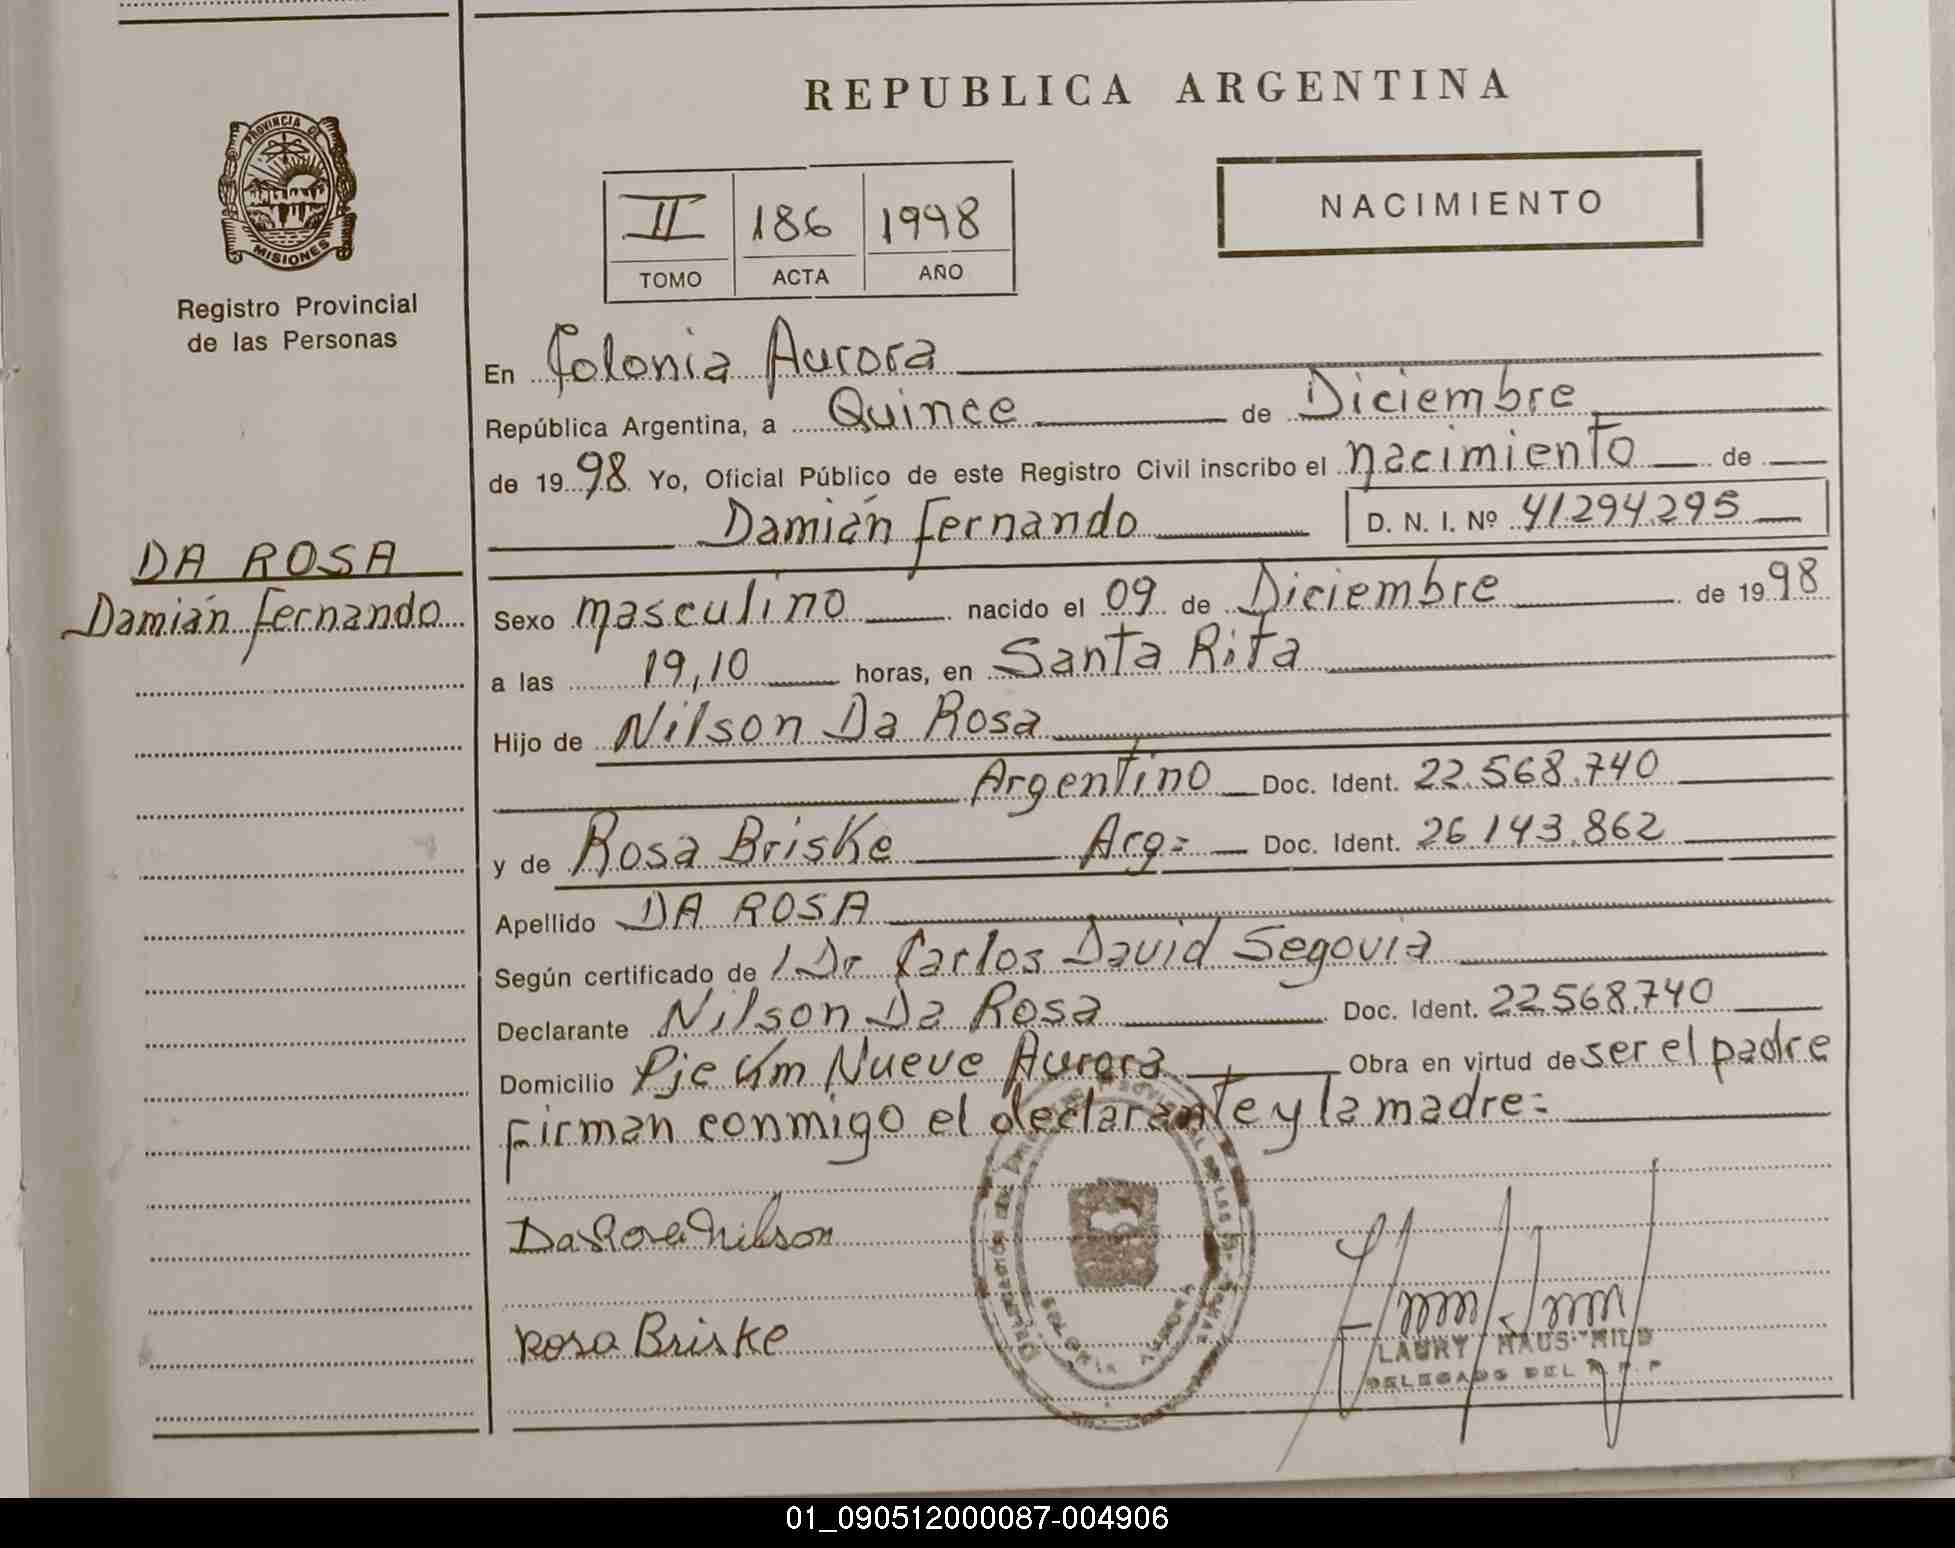 REPUBLICA ARGENTINA
PROVINCIA DE
MISIONES
Registro Provincial
de las Personas
NACIMIENTO
II 186 1998
TOMO ACTA AÑO
En Colonia Aurora
República Argentina, a Quince de Diciembre
de 1998 Yo, Oficial Público de este Registro Civil inscribo el nacimiento de
Damián Fernando D. N. I. Nº 41.294.295
DA ROSA
Damián Fernando
Sexo masculino nacido el 09 de Diciembre de 1998
a las 19,10 horas, en Santa Rita
Hijo de Nilson Da Rosa
Argentino Doc. Ident. 22.568.740
y de Rosa Briske Arg= Doc. Ident. 26.143.862
Apellido DA ROSA
Según certificado de Dr Carlos David Segovia
Declarante Nilson Da Rosa Doc. Ident. 22.568.740
Domicilio Pje Km Nueve Aurora Obra en virtud de ser el padre
Firman conmigo el declarante y la madre=
Da Rosa Nilson
Rosa Briske
LAURY HAUS
DELEGADO DEL R.P.P
01_090512000087-004906